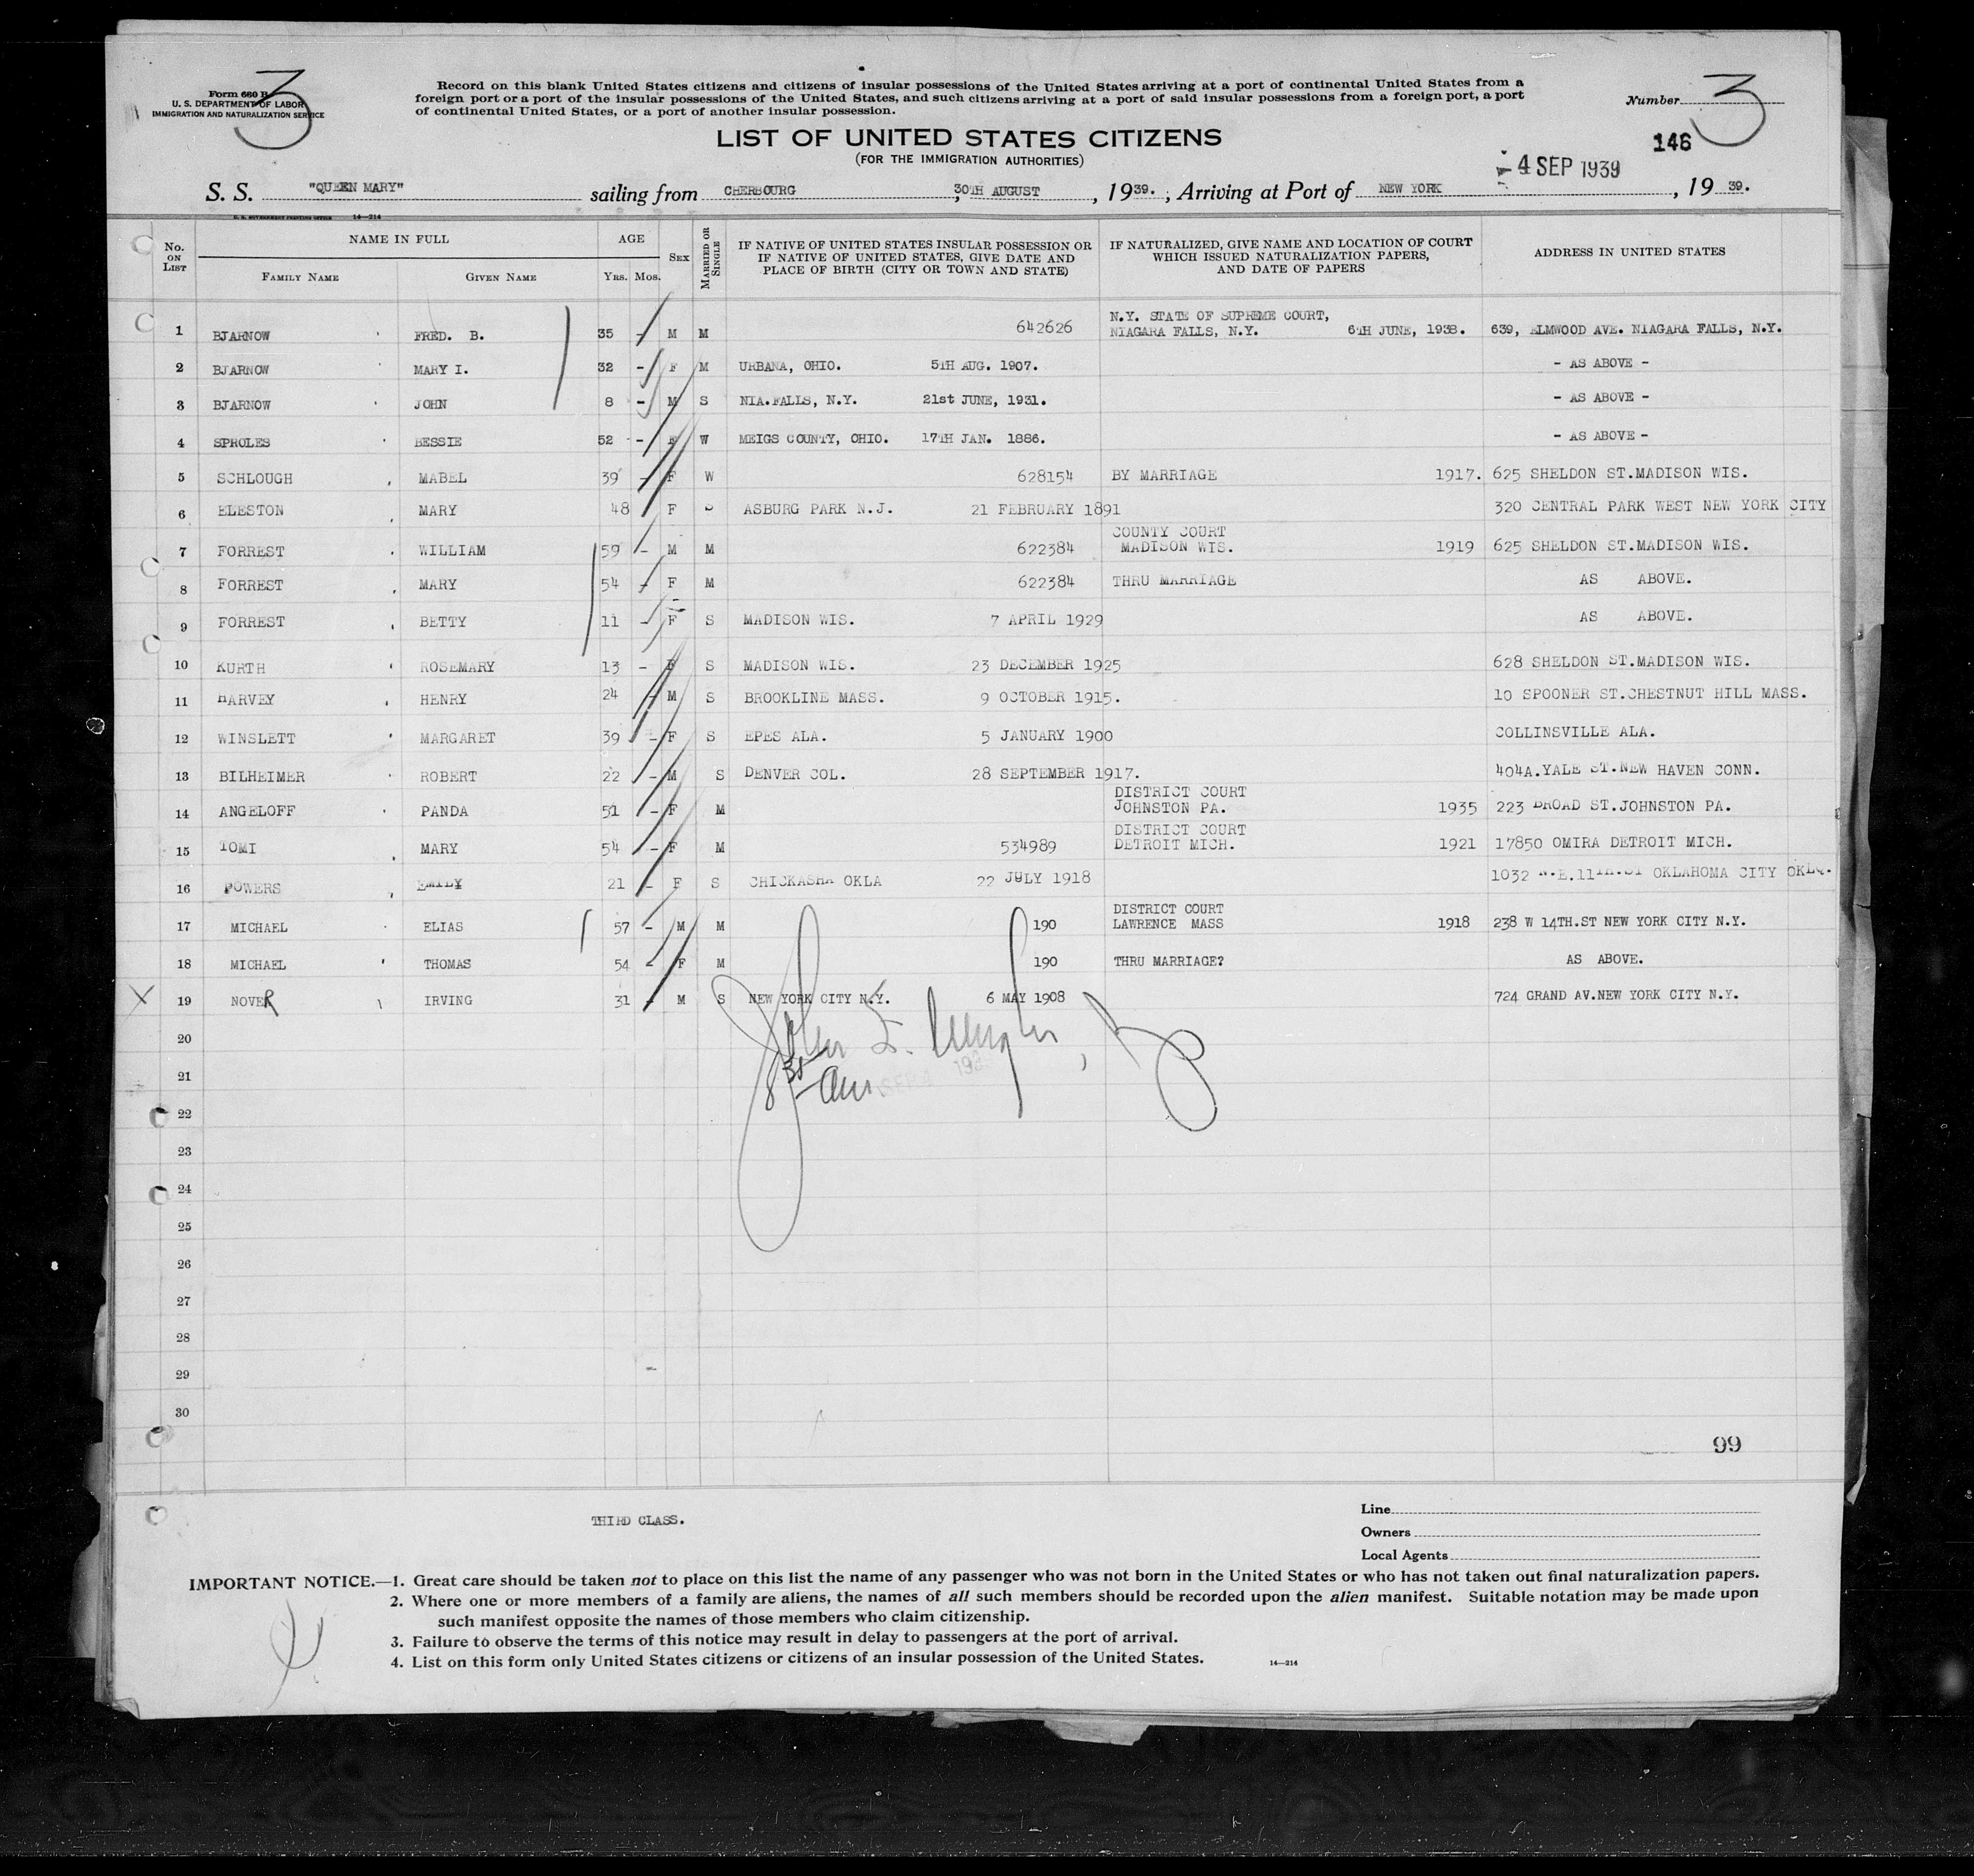 3
Form 680 B
U. S. DEPARTMENT OF LABOR
IMMIGRATION AND NATURALIZATION SERVICE
Record on this blank United States citizens and citizens of insular possessions of the United States arriving at a port of continental United States from a
foreign port or a port of the insular possessions of the United States, and such citizens arriving at a port of said insular possessions from a foreign port, a port
of continental United States, or a port of another insular possession.
Number 3
146
LIST OF UNITED STATES CITIZENS
(FOR THE IMMIGRATION AUTHORITIES)
4 SEP 1939
S. S. "QUEEN MARY" sailing from CHERBOURG, 30TH AUGUST, 1939. ; Arriving at Port of NEW YORK, 19 39.
U. S. GOVERNMENT PRINTING OFFICE 14—214
No. ON LIST
NAME IN FULL
FAMILY NAME GIVEN NAME
AGE
YRS. MOS.
SEX
MARRIED OR SINGLE
IF NATIVE OF UNITED STATES INSULAR POSSESSION OR
IF NATIVE OF UNITED STATES, GIVE DATE AND
PLACE OF BIRTH (CITY OR TOWN AND STATE)
IF NATURALIZED, GIVE NAME AND LOCATION OF COURT
WHICH ISSUED NATURALIZATION PAPERS,
AND DATE OF PAPERS
ADDRESS IN UNITED STATES
N.Y. STATE OF SUPREME COURT,
1 BJARNOW FRED. B. 35 - M M 642626 NIAGARA FALLS, N.Y. 6TH JUNE, 1938. 639, ELMWOOD AVE. NIAGARA FALLS, N.Y.
2 BJARNOW MARY I. 32 - F M URBANA, OHIO. 5TH AUG. 1907. - AS ABOVE -
3 BJARNOW JOHN 8 - M S NIA.FALLS, N.Y. 21st JUNE, 1931. - AS ABOVE -
4 SPROLES BESSIE 52 - F W MEIGS COUNTY, OHIO. 17TH JAN. 1886. - AS ABOVE -
5 SCHLOUGH MABEL 39 - F W 628154 BY MARRIAGE 1917. 625 SHELDON ST.MADISON WIS.
6 ELESTON MARY 48 F ASBURG PARK N.J. 21 FEBRUARY 1891 320 CENTRAL PARK WEST NEW YORK CITY
COUNTY COURT
7 FORREST WILLIAM 59 - M M 622384 MADISON WIS. 1919 625 SHELDON ST.MADISON WIS.
8 FORREST MARY 54 - F M 622384 THRU MARRIAGE AS ABOVE.
9 FORREST BETTY 11 - F S MADISON WIS. 7 APRIL 1929 AS ABOVE.
10 KURTH ROSEMARY 13 - F S MADISON WIS. 23 DECEMBER 1925 628 SHELDON ST.MADISON WIS.
11 HARVEY HENRY 24 - M S BROOKLINE MASS. 9 OCTOBER 1915. 10 SPOONER ST.CHESTNUT HILL MASS.
12 WINSLETT MARGARET 39 - F S EPES ALA. 5 JANUARY 1900 COLLINSVILLE ALA.
13 BILHEIMER ROBERT 22 - M S DENVER COL. 28 SEPTEMBER 1917. 404A.YALE ST.NEW HAVEN CONN.
DISTRICT COURT
14 ANGELOFF PANDA 51 - F M JOHNSTON PA. 1935 223 BROAD ST.JOHNSTON PA.
DISTRICT COURT
15 TOMI MARY 54 - F M 534989 DETROIT MICH. 1921 17850 OMIRA DETROIT MICH.
16 POWERS EMILY 21 - F S CHICKASHA OKLA 22 JULY 1918 1032 N.E.11TH.ST OKLAHOMA CITY OKLA.
DISTRICT COURT
17 MICHAEL ELIAS 57 - M M 190 LAWRENCE MASS 1918 238 W 14TH.ST NEW YORK CITY N.Y.
18 MICHAEL THOMAS 54 - F M 190 THRU MARRIAGE? AS ABOVE.
X 19 NOVER IRVING 31 - M S NEW YORK CITY N.Y. 6 MAY 1908 724 GRAND AV.NEW YORK CITY N.Y.
20
21
22
23
24
25
26
27
28
29
30
99
THIRD CLASS.
Line
Owners
Local Agents
IMPORTANT NOTICE.—1. Great care should be taken not to place on this list the name of any passenger who was not born in the United States or who has not taken out final naturalization papers.
2. Where one or more members of a family are aliens, the names of all such members should be recorded upon the alien manifest. Suitable notation may be made upon
such manifest opposite the names of those members who claim citizenship.
3. Failure to observe the terms of this notice may result in delay to passengers at the port of arrival.
4. List on this form only United States citizens or citizens of an insular possession of the United States.
14—214